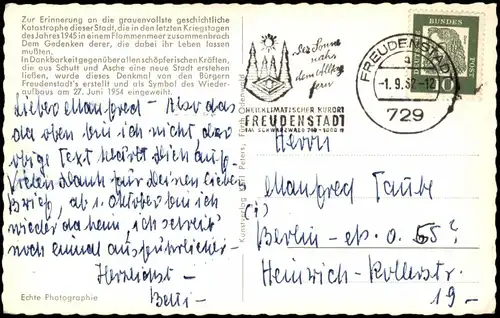 Zur Erinnerung an die grauenvollste geschichtliche
Katastrophe dieser Stadt, die in den letzten Kriegstagen
des Jahres 1945 in einem Flammenmeer zusammenbrach
Dem Gedenken derer, die dabei ihr Leben lassen
mußten.
In Dankbarkeit gegenüber allen schöpferischen Kräften,
die aus Schutt und Asche eine neue Stadt erstehen
ließen, wurde dieses Denkmal von den Bürgern
Freudenstadt's erstellt und als Symbol des Wieder-
aufbaus am 27. Juni 1954 eingeweiht.
Lieber Manfred – Also das
da oben bin ich nicht, der
obige Text klärt Dich auf –
Vielen Dank für Deinen lieben
Brief, ab 1. Oktober bin ich
wieder daheim, ich schreib'
noch einmal ausführlicher –
Herzlichst –
Echte Photographie
Kunstverlag Peters,
der Sonne
nahe
dem Alltag
fern
HEILKLIMATISCHER KURORT
FREUDENSTADT
IM SCHWARZWALD 740–1000 m
FREUDENSTADT
a
-1.9.62-12
729
BUNDES
POST
10
Herrn
Manfred Taube
(1) Berlin – 55?
Heinrich-Rollerstr.
19 –